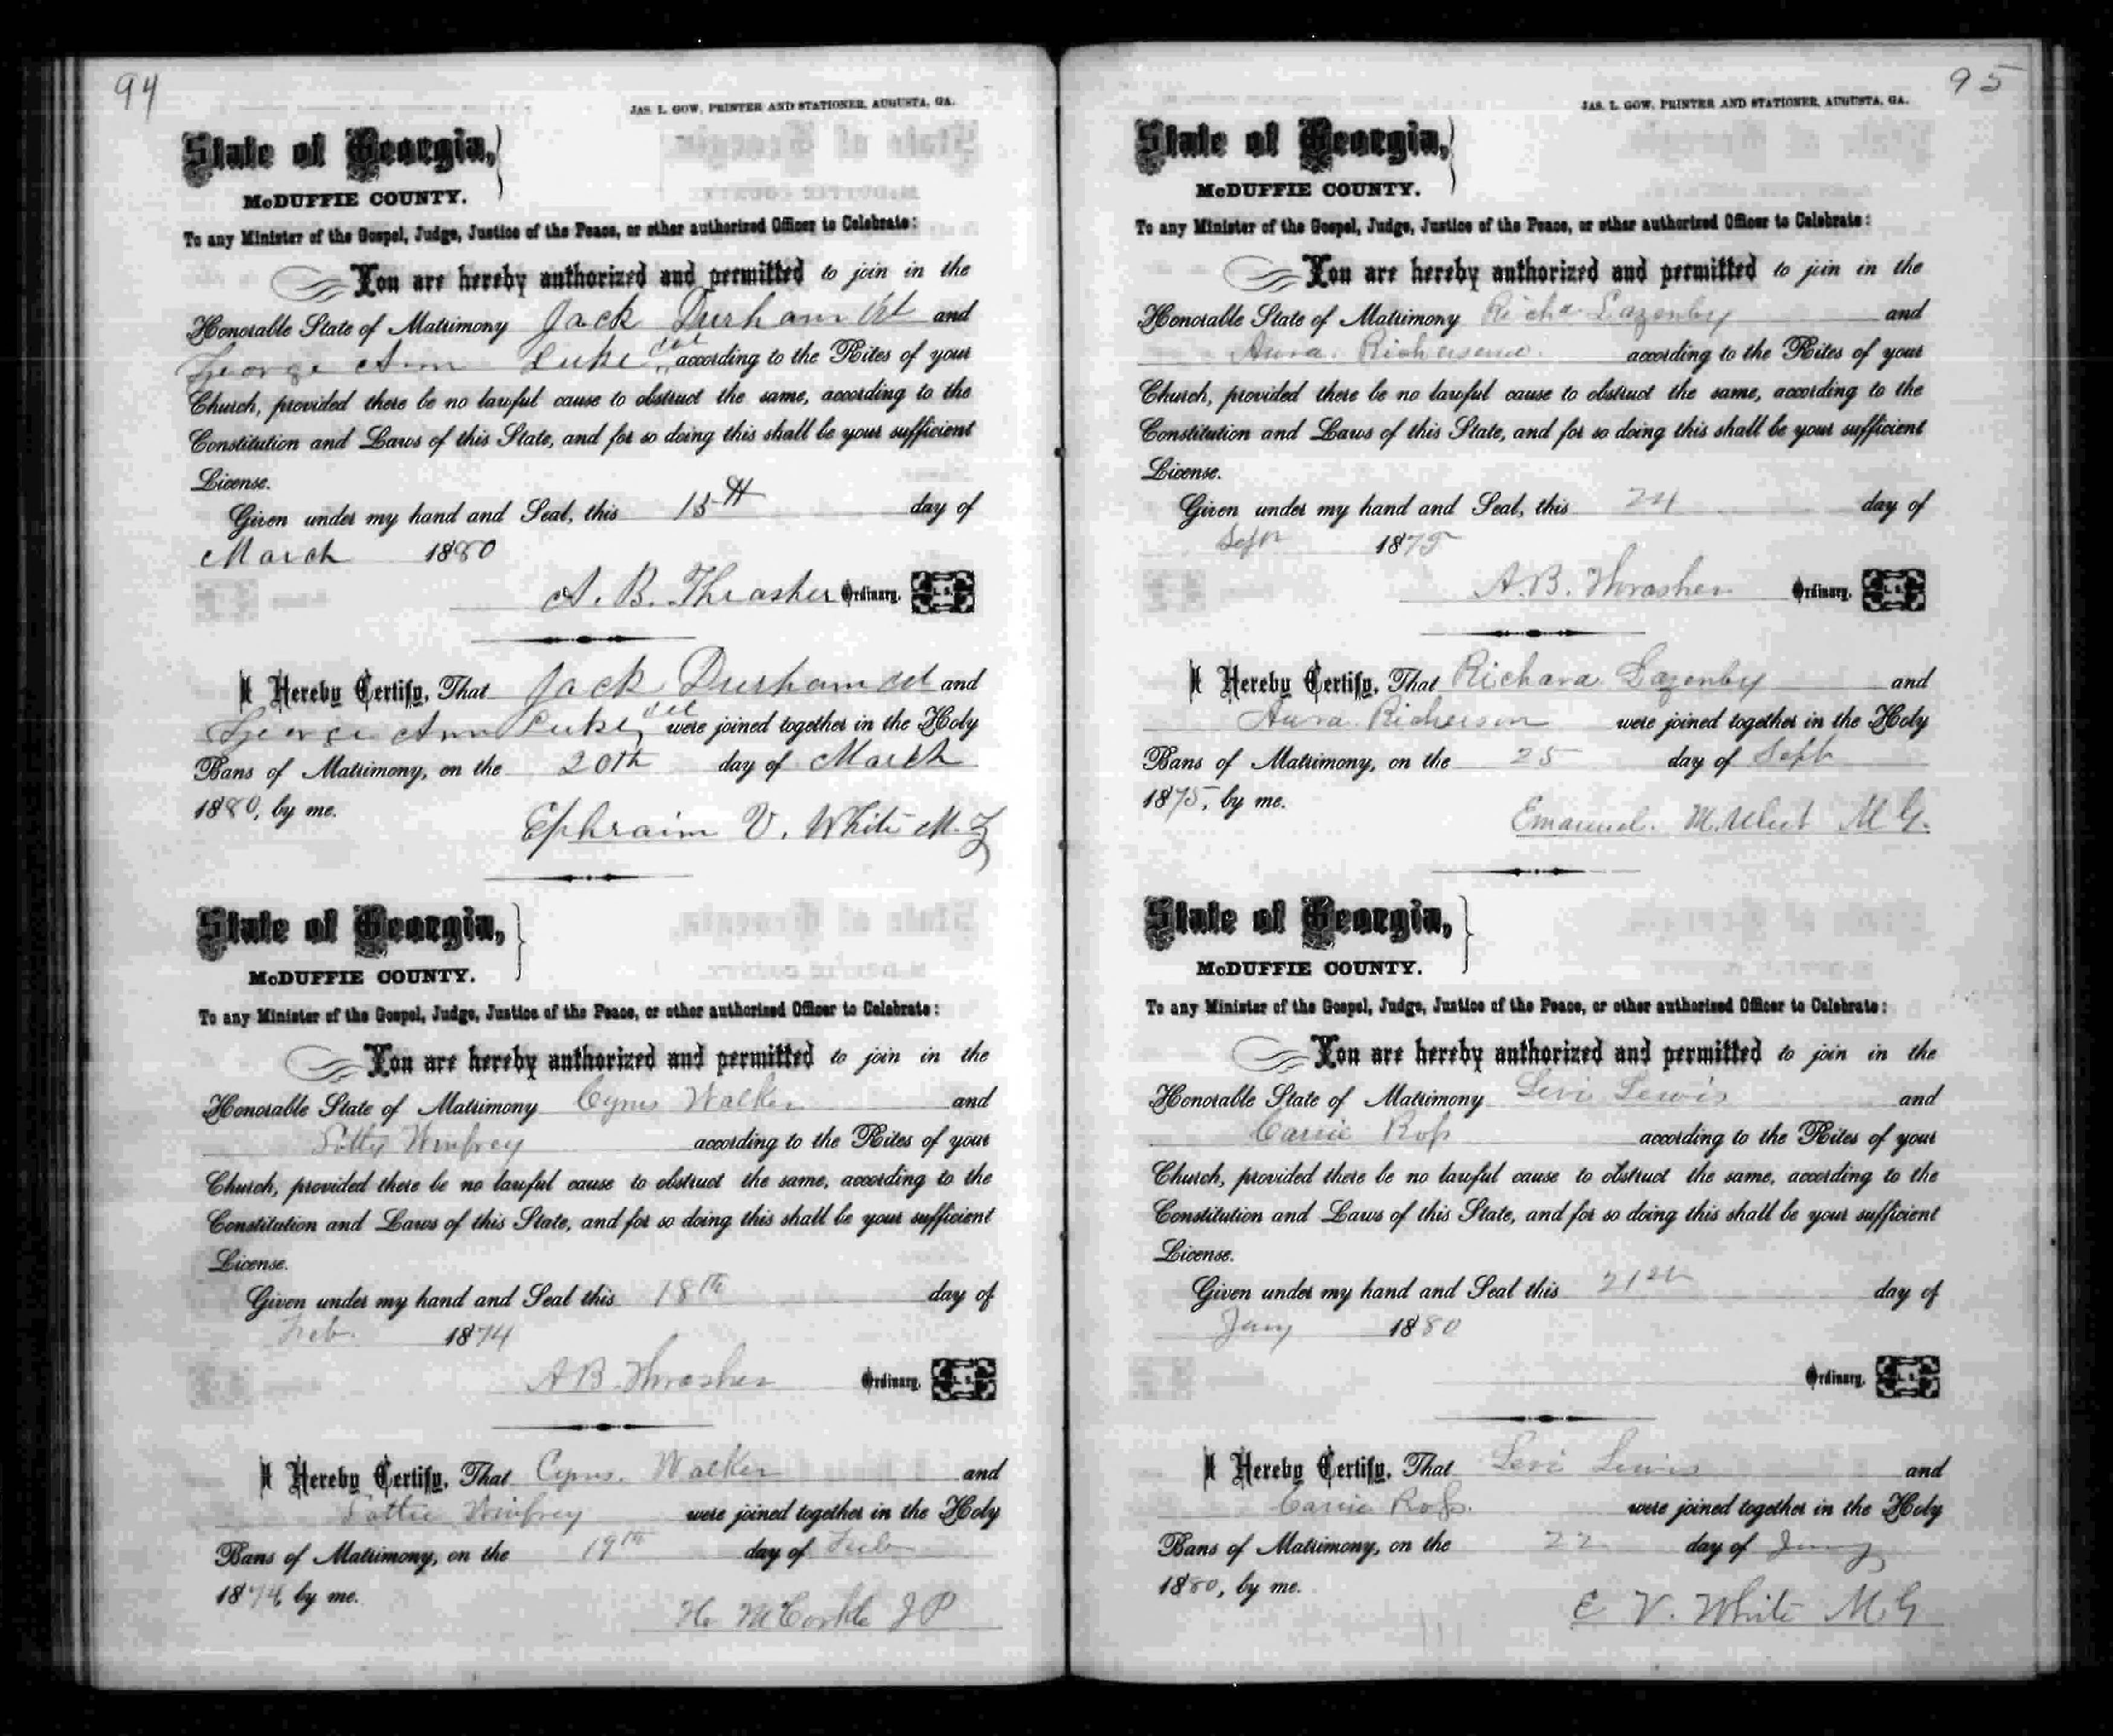 94
JAS. L. GOW, PRINTER AND STATIONER, AUGUSTA, GA.
State of Georgia,
McDUFFIE COUNTY.
To any Minister of the Gospel, Judge, Justice of the Peace, or other authorized Officer to Celebrate:
You are hereby authorized and permitted to join in the
Honorable State of Matrimony Jack Durham Col and
George Ann Luke col according to the Rites of your
Church, provided there be no lawful cause to obstruct the same, according to the
Constitution and Laws of this State, and for so doing this shall be your sufficient
License.
Given under my hand and Seal, this 15th day of
March 1880
A. B. Thrasher Ordinary. L. S.
I Hereby Certify, That Jack Durham col and
George Ann Luke col were joined together in the Holy
Bans of Matrimony, on the 20th day of March
1880, by me.
Ephraim V. White M. G
State of Georgia,
McDUFFIE COUNTY.
To any Minister of the Gospel, Judge, Justice of the Peace, or other authorized Officer to Celebrate:
You are hereby authorized and permitted to join in the
Honorable State of Matrimony Cyrus Walker and
Winfrey according to the Rites of your
Church, provided there be no lawful cause to obstruct the same, according to the
Constitution and Laws of this State, and for so doing this shall be your sufficient
License.
Given under my hand and Seal this 18th day of
Feb. 1874
A B Thrasher Ordinary. L. S.
I Hereby Certify, That Cyrus. Walker and
Winfrey were joined together in the Holy
Bans of Matrimony, on the 19th day of Feb
1874 by me.
H. McCorkle J P
95
JAS. L. GOW, PRINTER AND STATIONER, AUGUSTA, GA.
State of Georgia,
McDUFFIE COUNTY.
To any Minister of the Gospel, Judge, Justice of the Peace, or other authorized Officer to Celebrate:
You are hereby authorized and permitted to join in the
Honorable State of Matrimony Richd Lazenby and
according to the Rites of your
Church, provided there be no lawful cause to obstruct the same, according to the
Constitution and Laws of this State, and for so doing this shall be your sufficient
License.
Given under my hand and Seal, this 24 day of
Sept 1875
A. B. Thrasher Ordinary. L. S.
I Hereby Certify, That Richard Lazenby and
Richerson were joined together in the Holy
Bans of Matrimony, on the 25 day of Sept
1875, by me.
Emanuel. M. M G.
State of Georgia,
McDUFFIE COUNTY.
To any Minister of the Gospel, Judge, Justice of the Peace, or other authorized Officer to Celebrate:
You are hereby authorized and permitted to join in the
Honorable State of Matrimony Levi Lewis and
Carrie Ross according to the Rites of your
Church, provided there be no lawful cause to obstruct the same, according to the
Constitution and Laws of this State, and for so doing this shall be your sufficient
License.
Given under my hand and Seal this 21st day of
Jany 1880
Ordinary. L. S.
I Hereby Certify, That Levi Lewis and
Carrie Ross. were joined together in the Holy
Bans of Matrimony, on the 22 day of Jany
1880, by me.
E V. White M. G